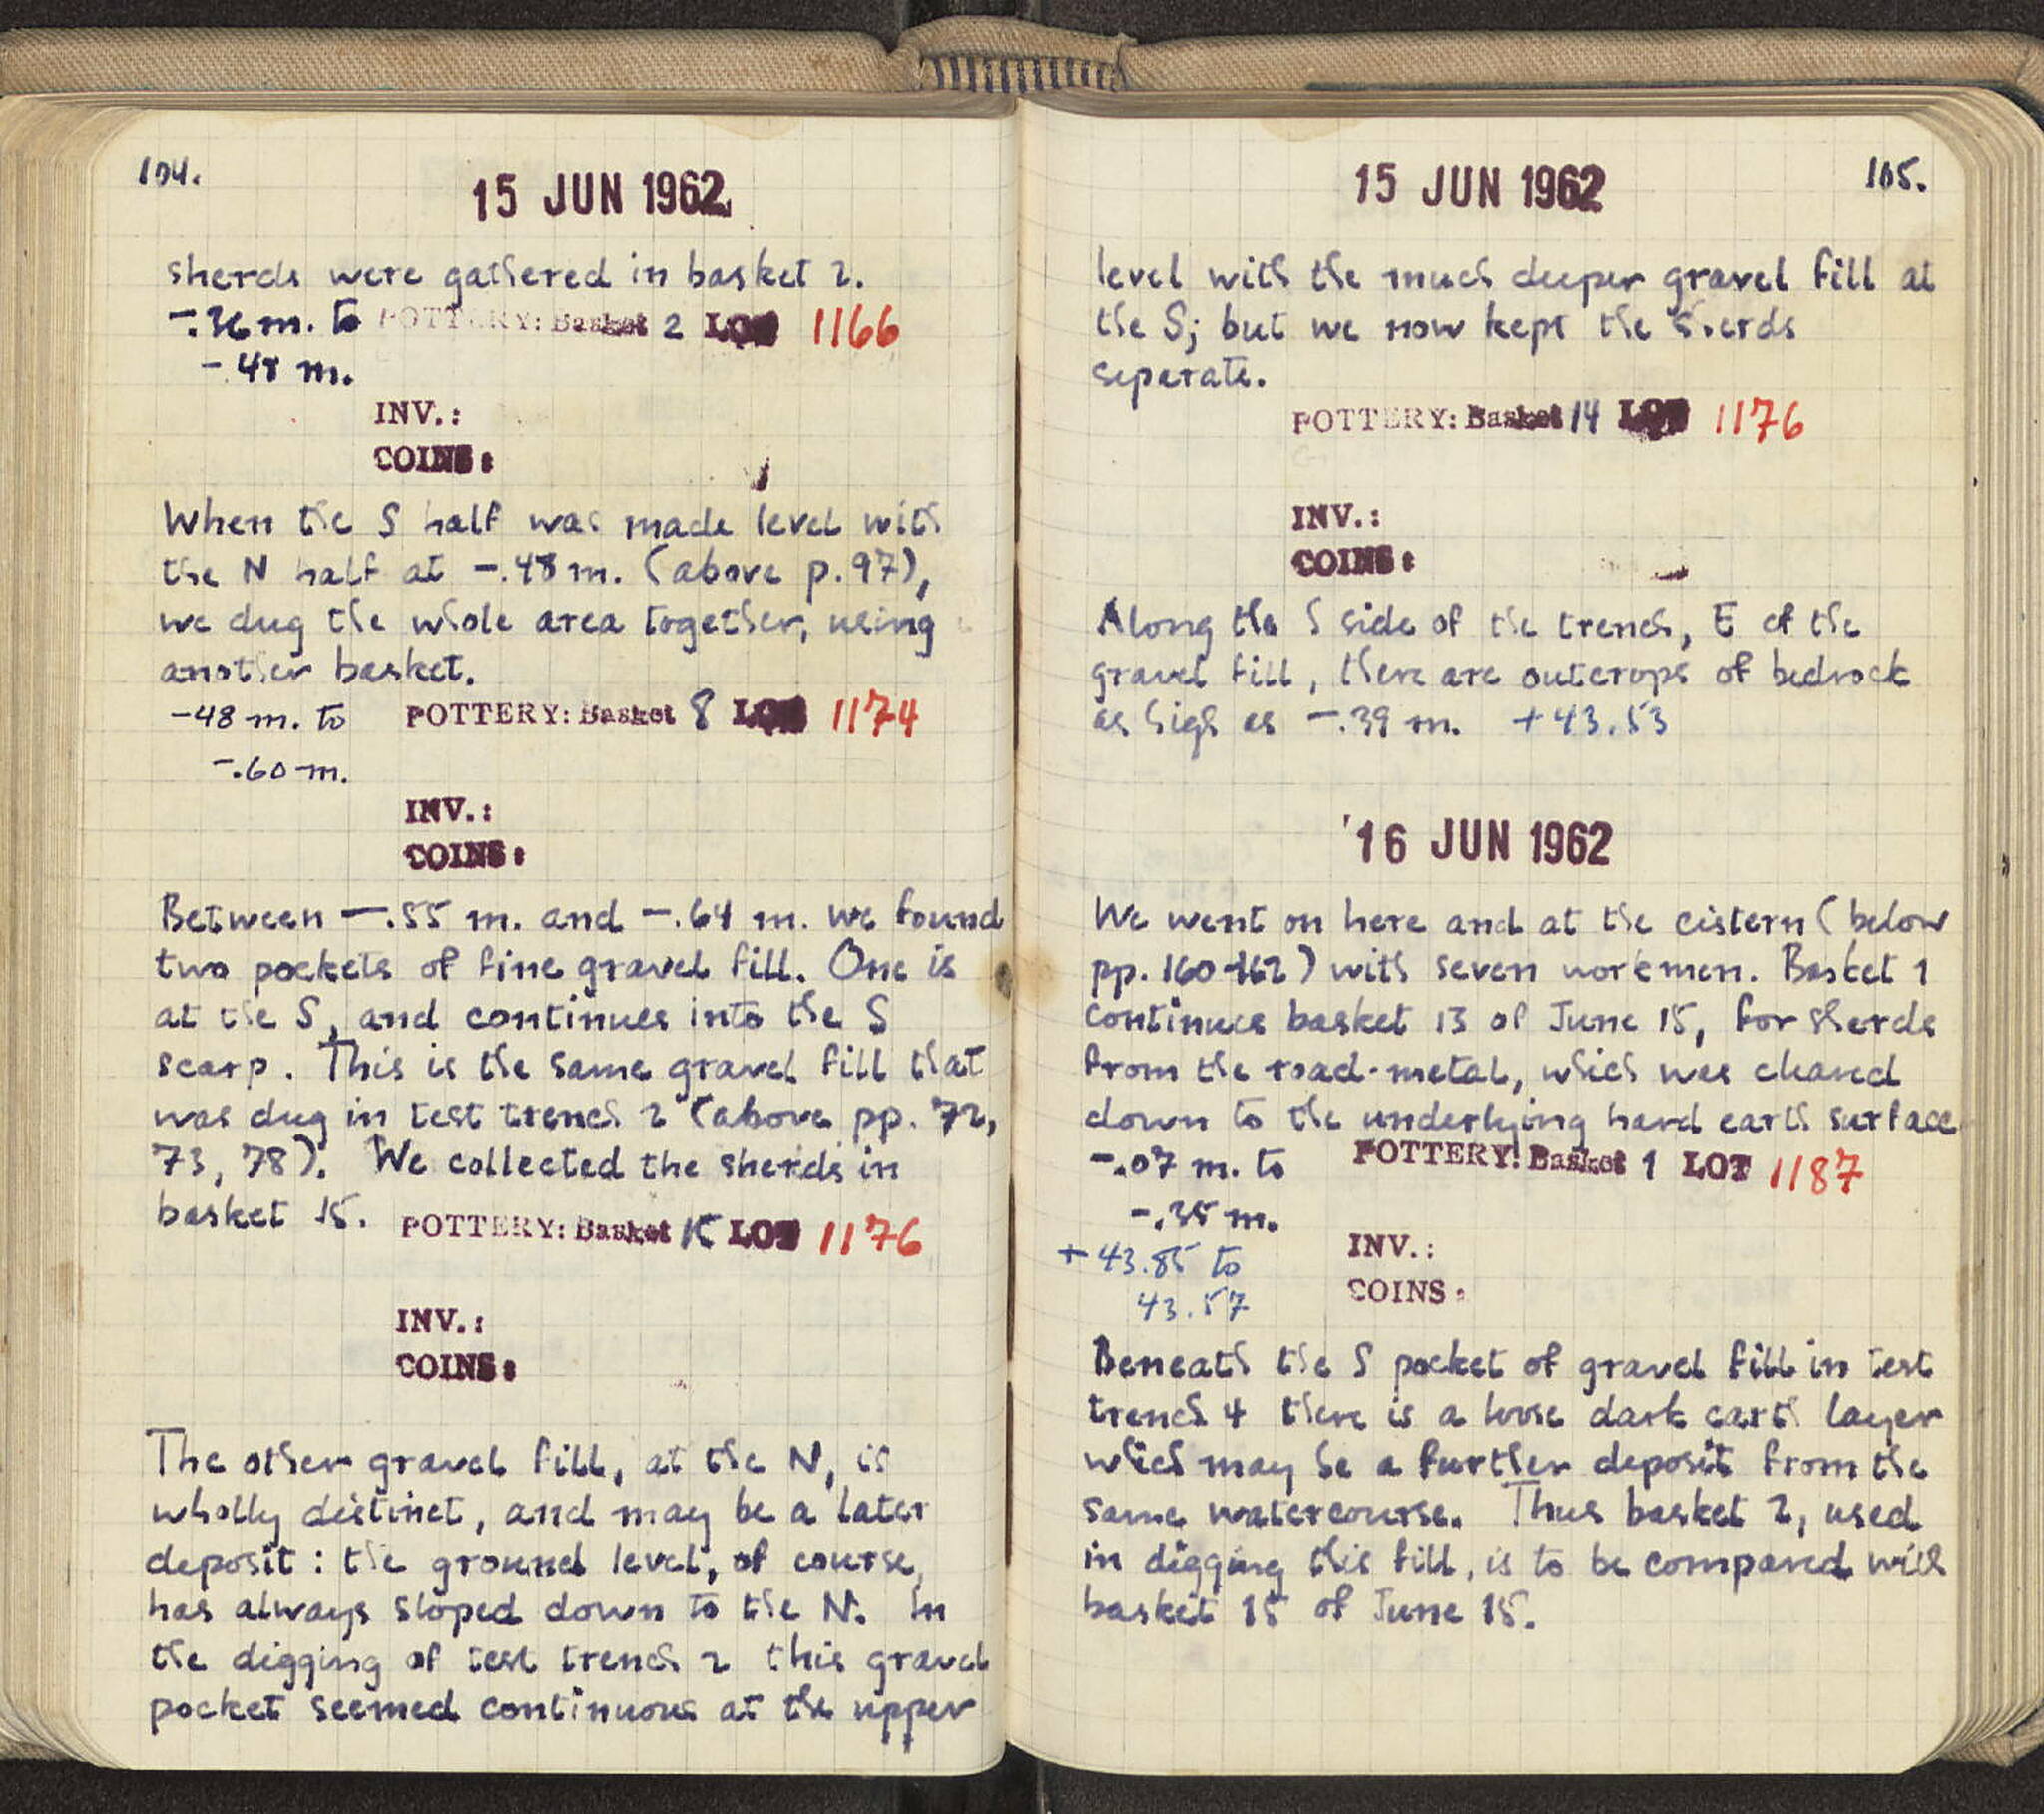 104.
15 JUN 1962
sherds were gathered in basket 2.
-.36 m. to POTTERY: Basket 2 LOT 1166
-.48 m.
INV.:
COINS:
When the S half was made level with
the N half at -.48 m. (above p. 97),
we dug the whole area together, using
another basket.
-48 m. to POTTERY: Basket 8 LOT 1174
-.60 m.
INV.:
COINS:
Between -.55 m. and -.64 m. we found
two pockets of fine gravel fill. One is
at the S, and continues into the S
scarp. This is the same gravel fill that
was dug in test trench 2 (above pp. 72,
73, 78). We collected the sherds in
basket 15. POTTERY: Basket 15 LOT 1176
INV.:
COINS:
The other gravel fill, at the N, is
wholly distinct, and may be a later
deposit: the ground level, of course,
has always sloped down to the N. In
the digging of test trench 2 this gravel
pocket seemed continuous at the upper
15 JUN 1962
105.
level with the much deeper gravel fill at
the S; but we now kept the sherds
seperate.
POTTERY: Basket 14 LOT 1176
INV.:
COINS:
Along the S side of the trench, E of the
gravel fill, there are outcrops of bedrock
as high as -.39 m. +43.53
16 JUN 1962
We went on here and at the cistern (below
pp. 160-162) with seven workmen. Basket 1
continues basket 13 of June 15, for sherds
from the road-metal, which was cleared
down to the underlying hard earth surface
-.07 m. to POTTERY: Basket 1 LOT 1187
-.35 m.
+43.85 to INV.:
43.57 COINS:
Beneath the S pocket of gravel fill in test
trench 4 there is a loose dark earth layer
which may be a further deposit from the
same watercourse. Thus basket 2, used
in digging this fill, is to be compared with
basket 15 of June 15.